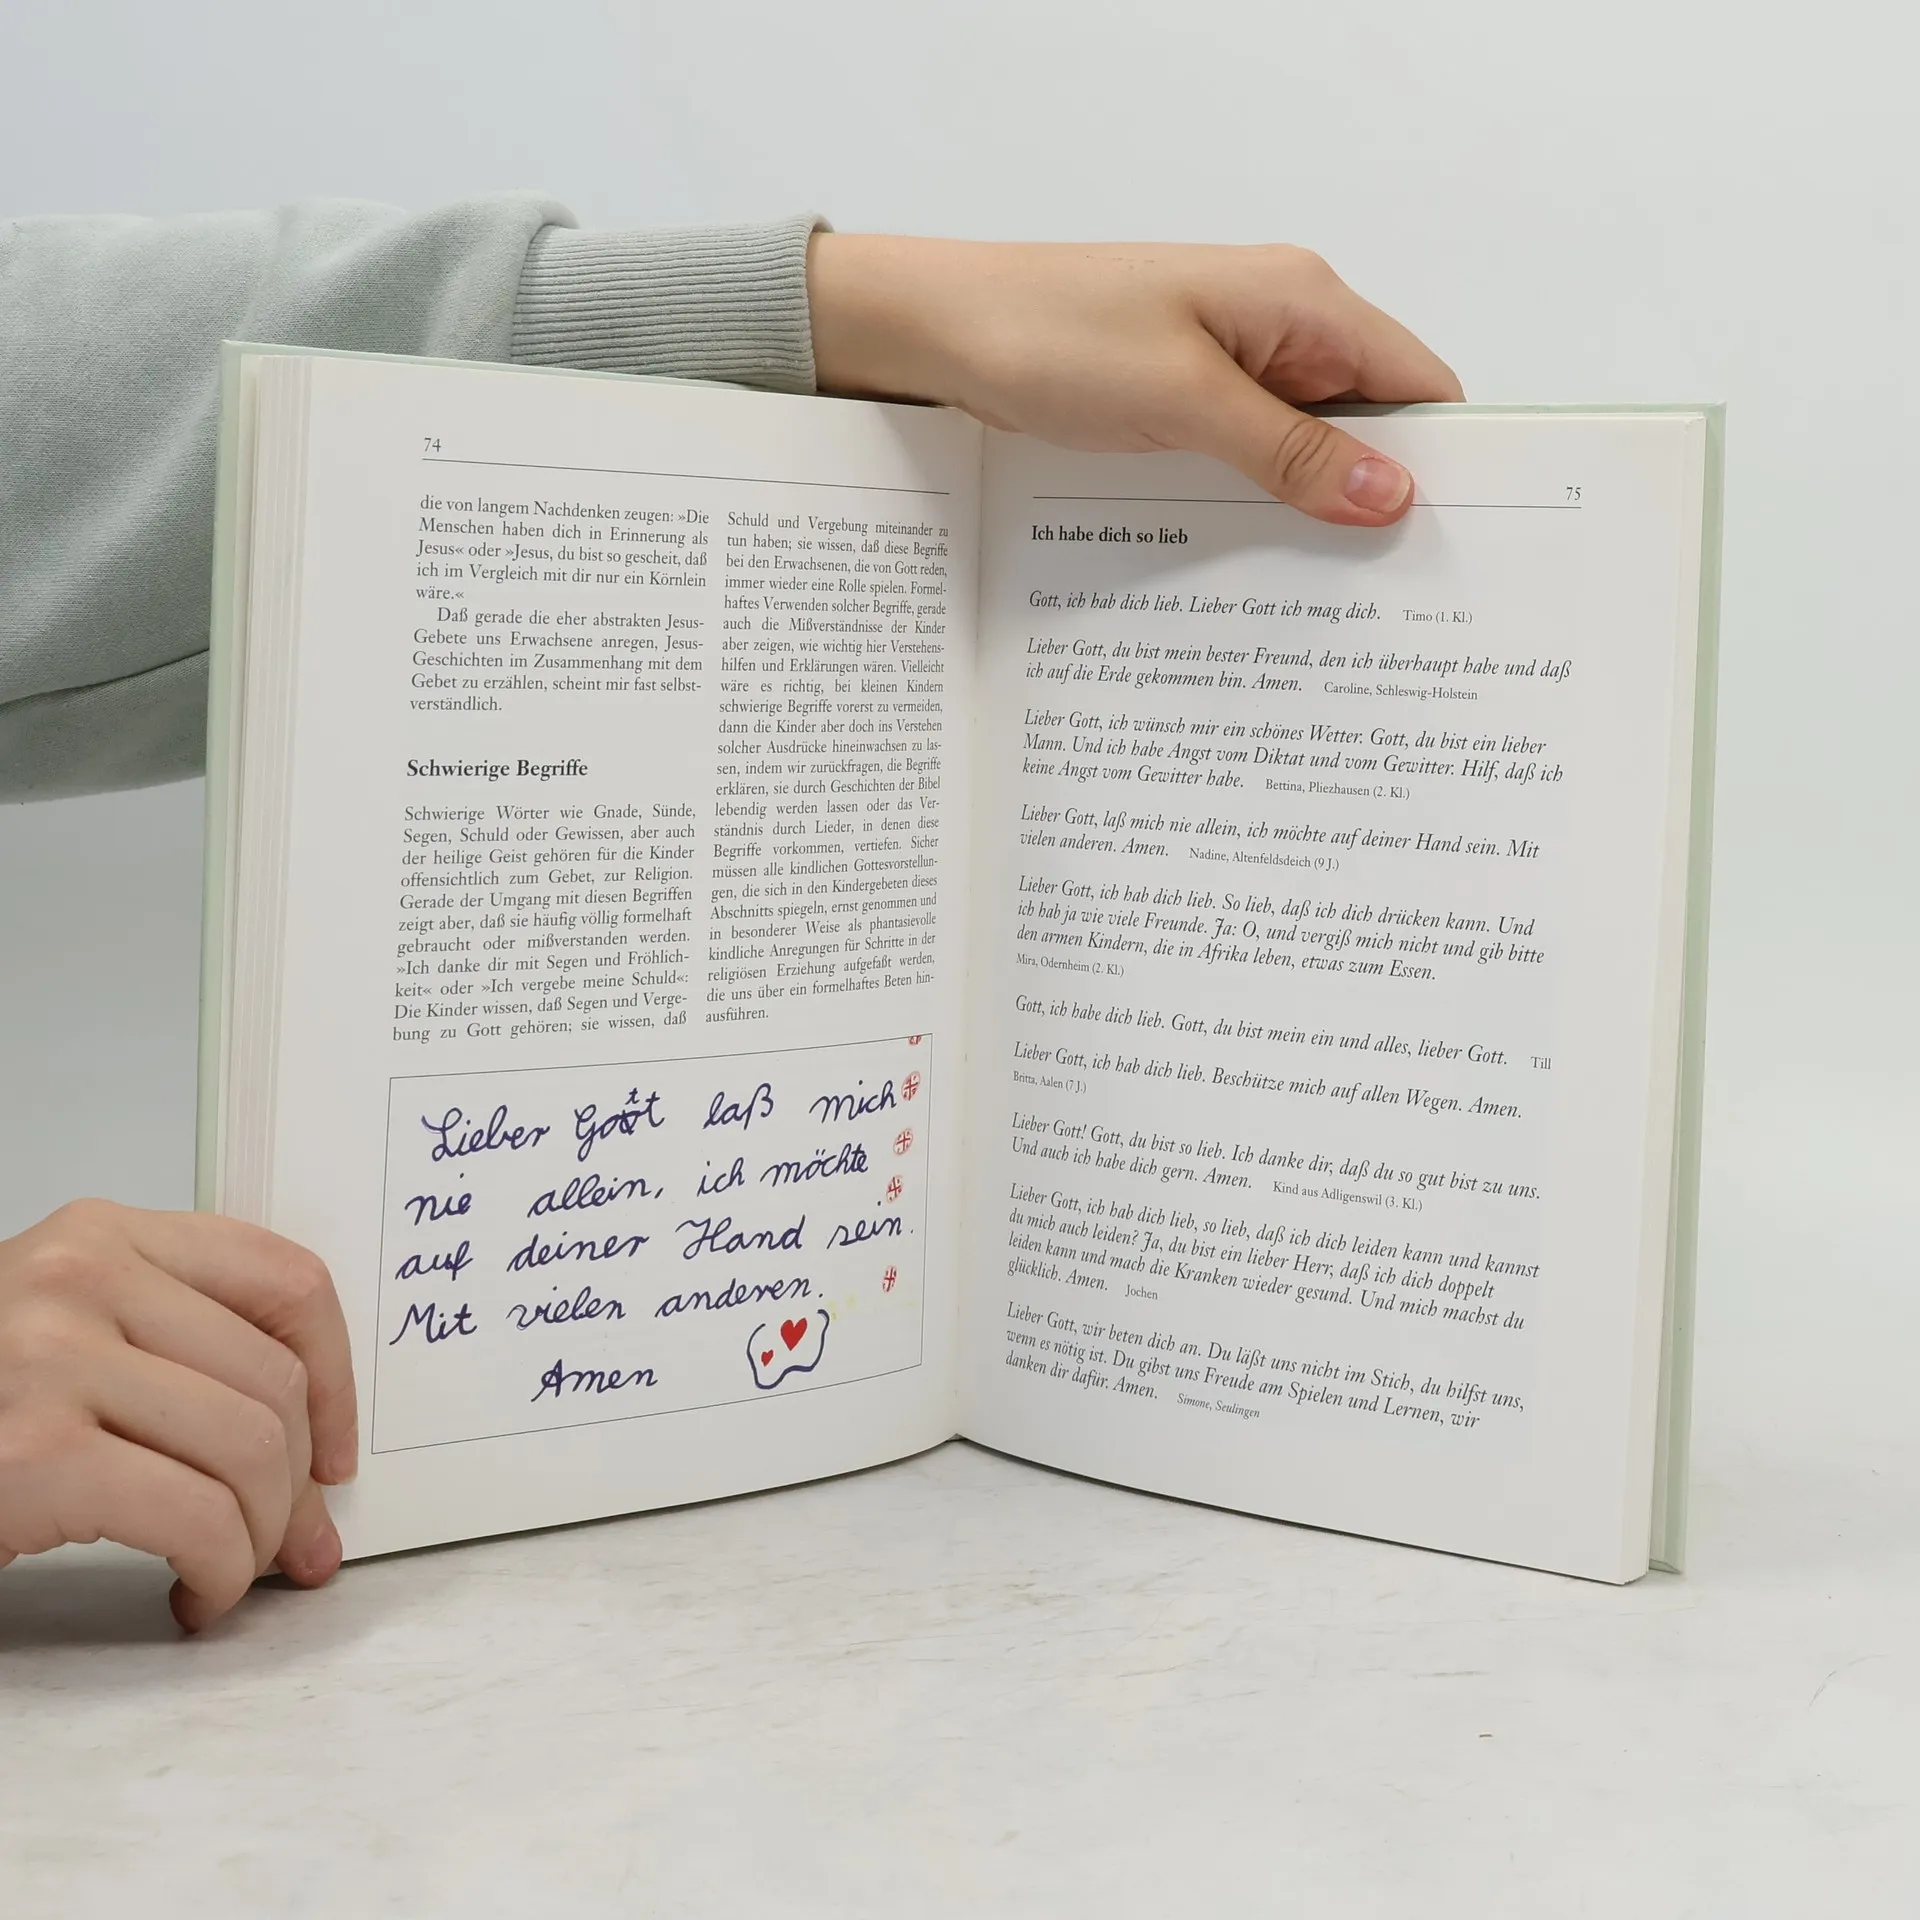 74
die von langem Nachdenken zeugen: »Die
Menschen haben dich in Erinnerung als
Jesus« oder »Jesus, du bist so gescheit, daß
ich im Vergleich mit dir nur ein Körnlein
wäre.«
Daß gerade die eher abstrakten Jesus-
Gebete uns Erwachsene anregen, Jesus-
Geschichten im Zusammenhang mit dem
Gebet zu erzählen, scheint mir fast selbst-
verständlich.
Schwierige Begriffe
Schwierige Wörter wie Gnade, Sünde,
Segen, Schuld oder Gewissen, aber auch
der heilige Geist gehören für die Kinder
offensichtlich zum Gebet, zur Religion.
Gerade der Umgang mit diesen Begriffen
zeigt aber, daß sie häufig völlig formelhaft
gebraucht oder mißverstanden werden.
»Ich danke dir mit Segen und Fröhlich-
keit« oder »Ich vergebe meine Schuld«:
Die Kinder wissen, daß Segen und Verge-
bung zu Gott gehören; sie wissen, daß
Schuld und Vergebung miteinander zu
tun haben; sie wissen, daß diese Begriffe
bei den Erwachsenen, die von Gott reden,
immer wieder eine Rolle spielen. Formel-
haftes Verwenden solcher Begriffe, gerade
auch die Mißverständnisse der Kinder
aber zeigen, wie wichtig hier Verstehens-
hilfen und Erklärungen wären. Vielleicht
wäre es richtig, bei kleinen Kindern
schwierige Begriffe vorerst zu vermeiden,
dann die Kinder aber doch ins Verstehen
solcher Ausdrücke hineinwachsen zu las-
sen, indem wir zurückfragen, die Begriffe
erklären, sie durch Geschichten der Bibel
lebendig werden lassen oder das Ver-
ständnis durch Lieder, in denen diese
Begriffe vorkommen, vertiefen. Sicher
müssen alle kindlichen Gottesvorstellun-
gen, die sich in den Kindergebeten dieses
Abschnitts spiegeln, ernst genommen und
in besonderer Weise als phantasievolle
kindliche Anregungen für Schritte in der
religiösen Erziehung aufgefaßt werden,
die uns über ein formelhaftes Beten hin-
ausführen.
Lieber Gott laß mich
nie allein, ich möchte
auf deiner Hand sein.
Mit vielen anderen.
Amen
75
Ich habe dich so lieb
Gott, ich hab dich lieb. Lieber Gott ich mag dich. Timo (1. Kl.)
Lieber Gott, du bist mein bester Freund, den ich überhaupt habe und daß
ich auf die Erde gekommen bin. Amen. Caroline, Schleswig-Holstein
Lieber Gott, ich wünsch mir ein schönes Wetter. Gott, du bist ein lieber
Mann. Und ich habe Angst vom Diktat und vom Gewitter. Hilf, daß ich
keine Angst vom Gewitter habe. Bettina, Pliezhausen (2. Kl.)
Lieber Gott, laß mich nie allein, ich möchte auf deiner Hand sein. Mit
vielen anderen. Amen. Nadine, Altenfeldsdeich (9 J.)
Lieber Gott, ich hab dich lieb. So lieb, daß ich dich drücken kann. Und
ich hab ja wie viele Freunde. Ja: O, und vergiß mich nicht und gib bitte
den armen Kindern, die in Afrika leben, etwas zum Essen.
Mira, Odernheim (2. Kl.)
Gott, ich habe dich lieb. Gott, du bist mein ein und alles, lieber Gott. Till
Lieber Gott, ich hab dich lieb. Beschütze mich auf allen Wegen. Amen.
Britta, Aalen (7 J.)
Lieber Gott! Gott, du bist so lieb. Ich danke dir, daß du so gut bist zu uns.
Und auch ich habe dich gern. Amen. Kind aus Adligenswil (3. Kl.)
Lieber Gott, ich hab dich lieb, so lieb, daß ich dich leiden kann und kannst
du mich auch leiden? Ja, du bist ein lieber Herr, daß ich dich doppelt
leiden kann und mach die Kranken wieder gesund. Und mich machst du
glücklich. Amen. Jochen
Lieber Gott, wir beten dich an. Du läßt uns nicht im Stich, du hilfst uns,
wenn es nötig ist. Du gibst uns Freude am Spielen und Lernen, wir
danken dir dafür. Amen. Simone, Seulingen